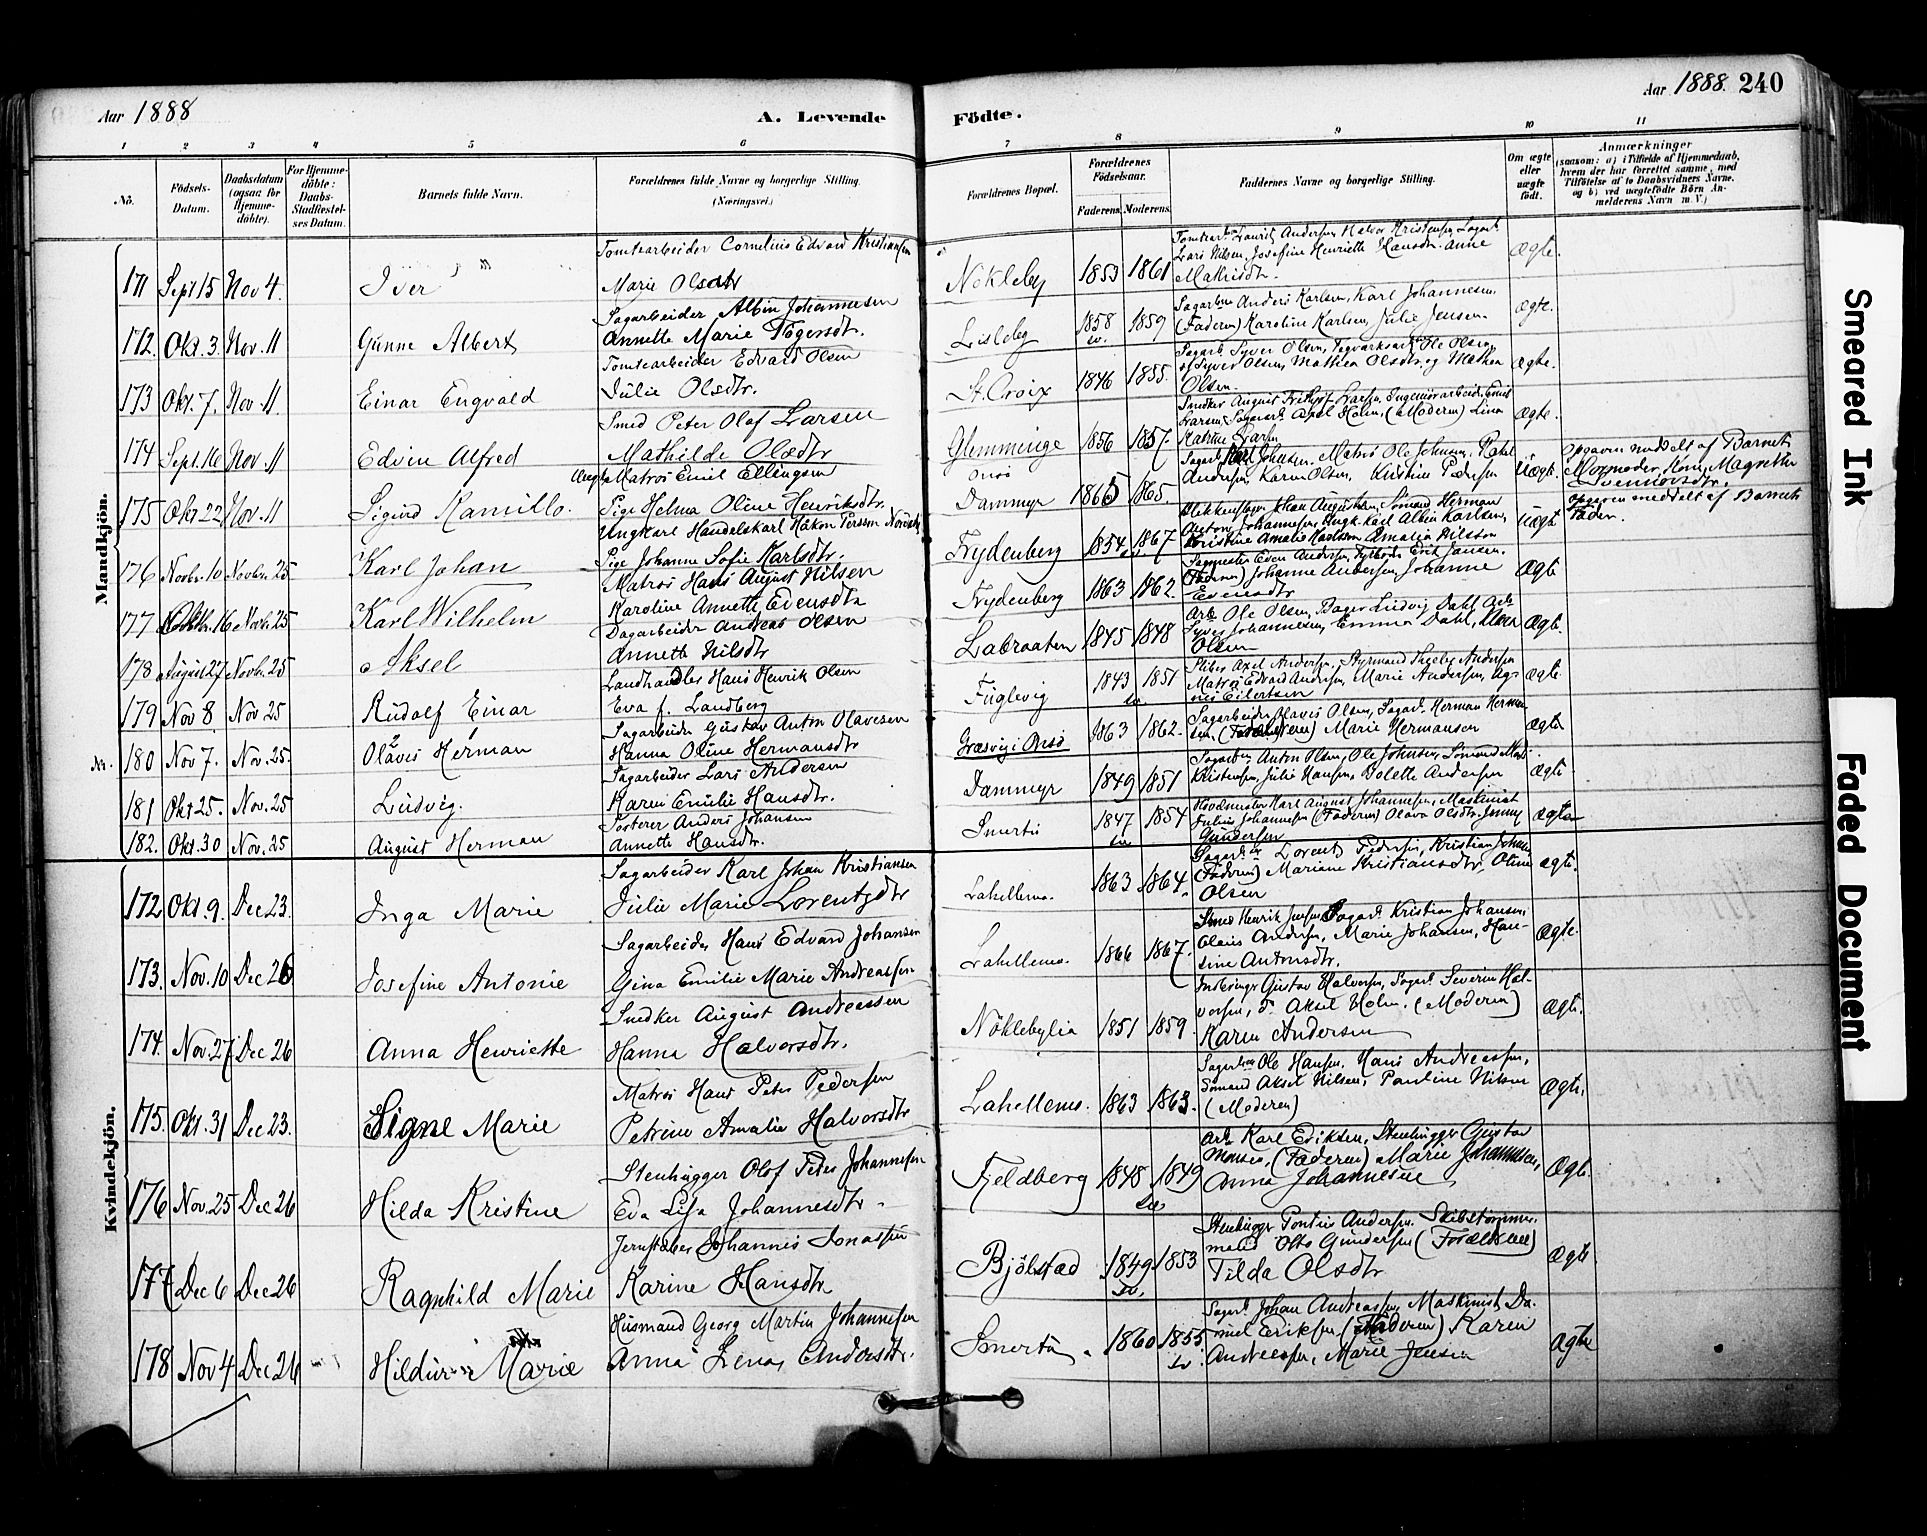 Aar 1888
A. Levende
Födte.
Aar 1888. 240
1 2 3 4 5 6 7 8 9 10 11
No.
Födsels-Datum.
Daabsdatum (ogsaa for Hjemmedöbte).
For Hjemmedöbte: Daabs-Stadfæstelses Datum.
Barnets fulde Navn.
Forældrenes fulde Navne og borgerlige Stilling. (Næringsvei.)
Forældrenes Bopæl.
Forældrenes Födselsaar.
Faderens. Moderens.
Faddernes Navne og borgerlige Stilling.
Om ægte eller uægte födt.
Anmærkninger
(saasom: a) i Tilfælde af Hjemmedaab, hvem der har forrettet samme, med Tilföielse af to Daabsvidners Navne, og b) ved uægtefödte Börn Anmelderens Navn m. V.)
Mandkjön.
171 Sept 15 Nov 4. Iver
Tomtearbeider Cornelius Edvard Kristiansen
Marie Olsdtr
Nokleby 1853 1861
Lars Nilsen, Josefine Henriette Hansdtr. Anne
Mathisdtr.
Ægte.
172. Okt. 3. Nov. 11 Gunne Albert
Sagarbeider Albin Johannesen
Annette Marie Tögersdtr.
Lisleby 1858 1859
Sagarbeid Anders Karlsen, Karl Johannesen,
(Faderen) Karoline Karlsen, Julie Jensen.
ægte.
173 Okt. 7. Nov. 11 Einar Engvald
Tomtearbeider Edvard Olsen
Julie Olsdtr.
St. Croix 1846 1855.
Olsen.
Ægte.
174 Sept. 16 Nov. 11 Edvin Alfred
Smed Peter Olaf Larsen
Mathilde Olsdtr
Glemminge 1856 1857.
Larsen, Axel Holm, (Moderen) Lina
Katrine Larsen
Ægte.
175 Okt 22 Nov. 11 Sigurd Kamillo.
Ungk. Matros Emil Ellingsen
Pige Helma Oline Henriksdtr.
Onsö
Dammyr 1865 1865.
Andersen, Karen Olsen, Kristine Pedersen
Uægt.
Opgaven meddelt af Barnets
Mormoder, Kone Magrethe
176 Novbr. 10 Novbr. 25 Karl Johan
Ungkarl Handelskarl Håkon Persson
Pige Johanne Sofie Karlsdtr.
Frydenberg 1854 1867
Anton Johannesen, Ungk. Karl Albin Karlsen,
Kristine Amalie Karlsson Amalia Nilsson
Uægt
Opgaven meddelt af Barnets
Fader.
177 16 Novbr. 25 Karl Wilhelm
Matros Hans August Nilsen
Karoline Annette Evensdtr
Frydenberg 1863 1862.
(Faderen) Johanne Andersen, Johanne
Evensdtr
Ægte
178 August 27 Novbr. 25 Aksel
Dagarbeider Andreas Olsen
Annette Nilsdtr
Labraaten 1845 1848
Arb. Ole Olsen, Bager Ludvig Dahl, Arb.
Syver Johannesen, Emma Dahl,
Olsen
Ægte.
179 Nov 8. Nov 25 Rudolf Einar
Landhandler Hans Henrik Olsen
Eva f. Landberg
Fuglevig 1843 1851
Matros Edvard Andersen, Marie Andersen, Ag-
nes Eilertsen
ægte.
Nr. 180 Nov 7. Nov. 25 Olavis Herman
Sagarbeider Gustav Anton Olavesen
Hanna Oline Hermansdtr
Græsvig i Onsö 1863 1862.
Sagarbeider Olavis Olsen, Sagarb. Herman Herman
sen, Marie Hermansen
ægte
181 Okt 25. Nov. 25 Ludvig.
Sagarbeider Lars Andersen
Karen Emilie Hansdtr.
Dammyr 1849 1851
Kristensen, Julie Hansen, Bolette Andersen
ægte
182. Okt. 30 Nov. 25 August Herman
Sorterer Anders Johansen
Annette Hansdtr.
Smertu 1847 1854
Karl August Johannesen, Maskinist
Julius Johannesen (Faderen) Olava Olsdtr. Jenny
Gundersen
ægte
Kvindekjön.
172 Okt. 9. Dec 23. Inga Marie
Sagarbeider Karl Johan Kristiansen
Julie Marie Lorentzdtr
Lahellemo. 1863 1864.
Sagarb. Lorents Pedersen, Kristian Johans
(Faderen) Mariane Kristiansdtr, Oline
Olsen
ægte.
173. Nov. 10 Dec 26 Josefine Antonie
Sagarbeider Hans Edvard Johansen
Gina Emilie Marie Andreassen
Lahellemo. 1866 1867.
Smed Henrik Jensen, Sagarb. Kristian Johansen,
Olaus Andersen, Marie Johansen, Han-
sine Antonsdtr.
Ægte.
174. Nov. 27. Dec 26 Anna Henriette
Snedker August Andreassen
Hanna Halvorsdtr.
Nöklebylia 1851 1859.
Gustav Halvorsen, Sagarb. Severin Hal-
vorsen, Aksel Holm. (Moderen)
Karen Andersen
Ægte.
175. Okt. 31 Dec 23. Signe Marie
Matros Hans Peter Pedersen
Petrine Amalie Halvorsdtr
Lahellemo. 1863 1863.
Sagarb. Ole Hansen, Hans Andreassen,
Sömand Aksel Nilsen, Pauline Nilsen
(Moderen)
Ægte.
176 Nov. 25 Dec 26 Hilda Kristine
Stenhugger Olof Peter Johannesen
Eva Lisa Johannesdtr
Fjeldberg 1848 1849
Arb. Karl Eriksen, Stenhugger Gustav
Monsen, (Faderen) Marie Johannesen,
Anna Johannesen
Ægt.
177 Dec 6 Dec 26 Ragnhild Marie
Johannis Jonassen
Karine Hansdtr
Bjölstad 1849 1853
Stenhugger Pontus Andersen. Skibstömmer-
mand Otto Gundersen (Forældrene)
Tilda Olsdtr
Ægte
178 Nov 4 Dec 26 Hildur Marie
Husmand Georg Martin Johannesen
Anna Lena Andersdtr.
Smertu 1860 1855
Sagarb. Johan Andreassen, Maskinist Da-
niel Eriksen, (Faderen) Karen
Andreassen, Marie Jensen
Ægte
Smeared Ink
Faded Document